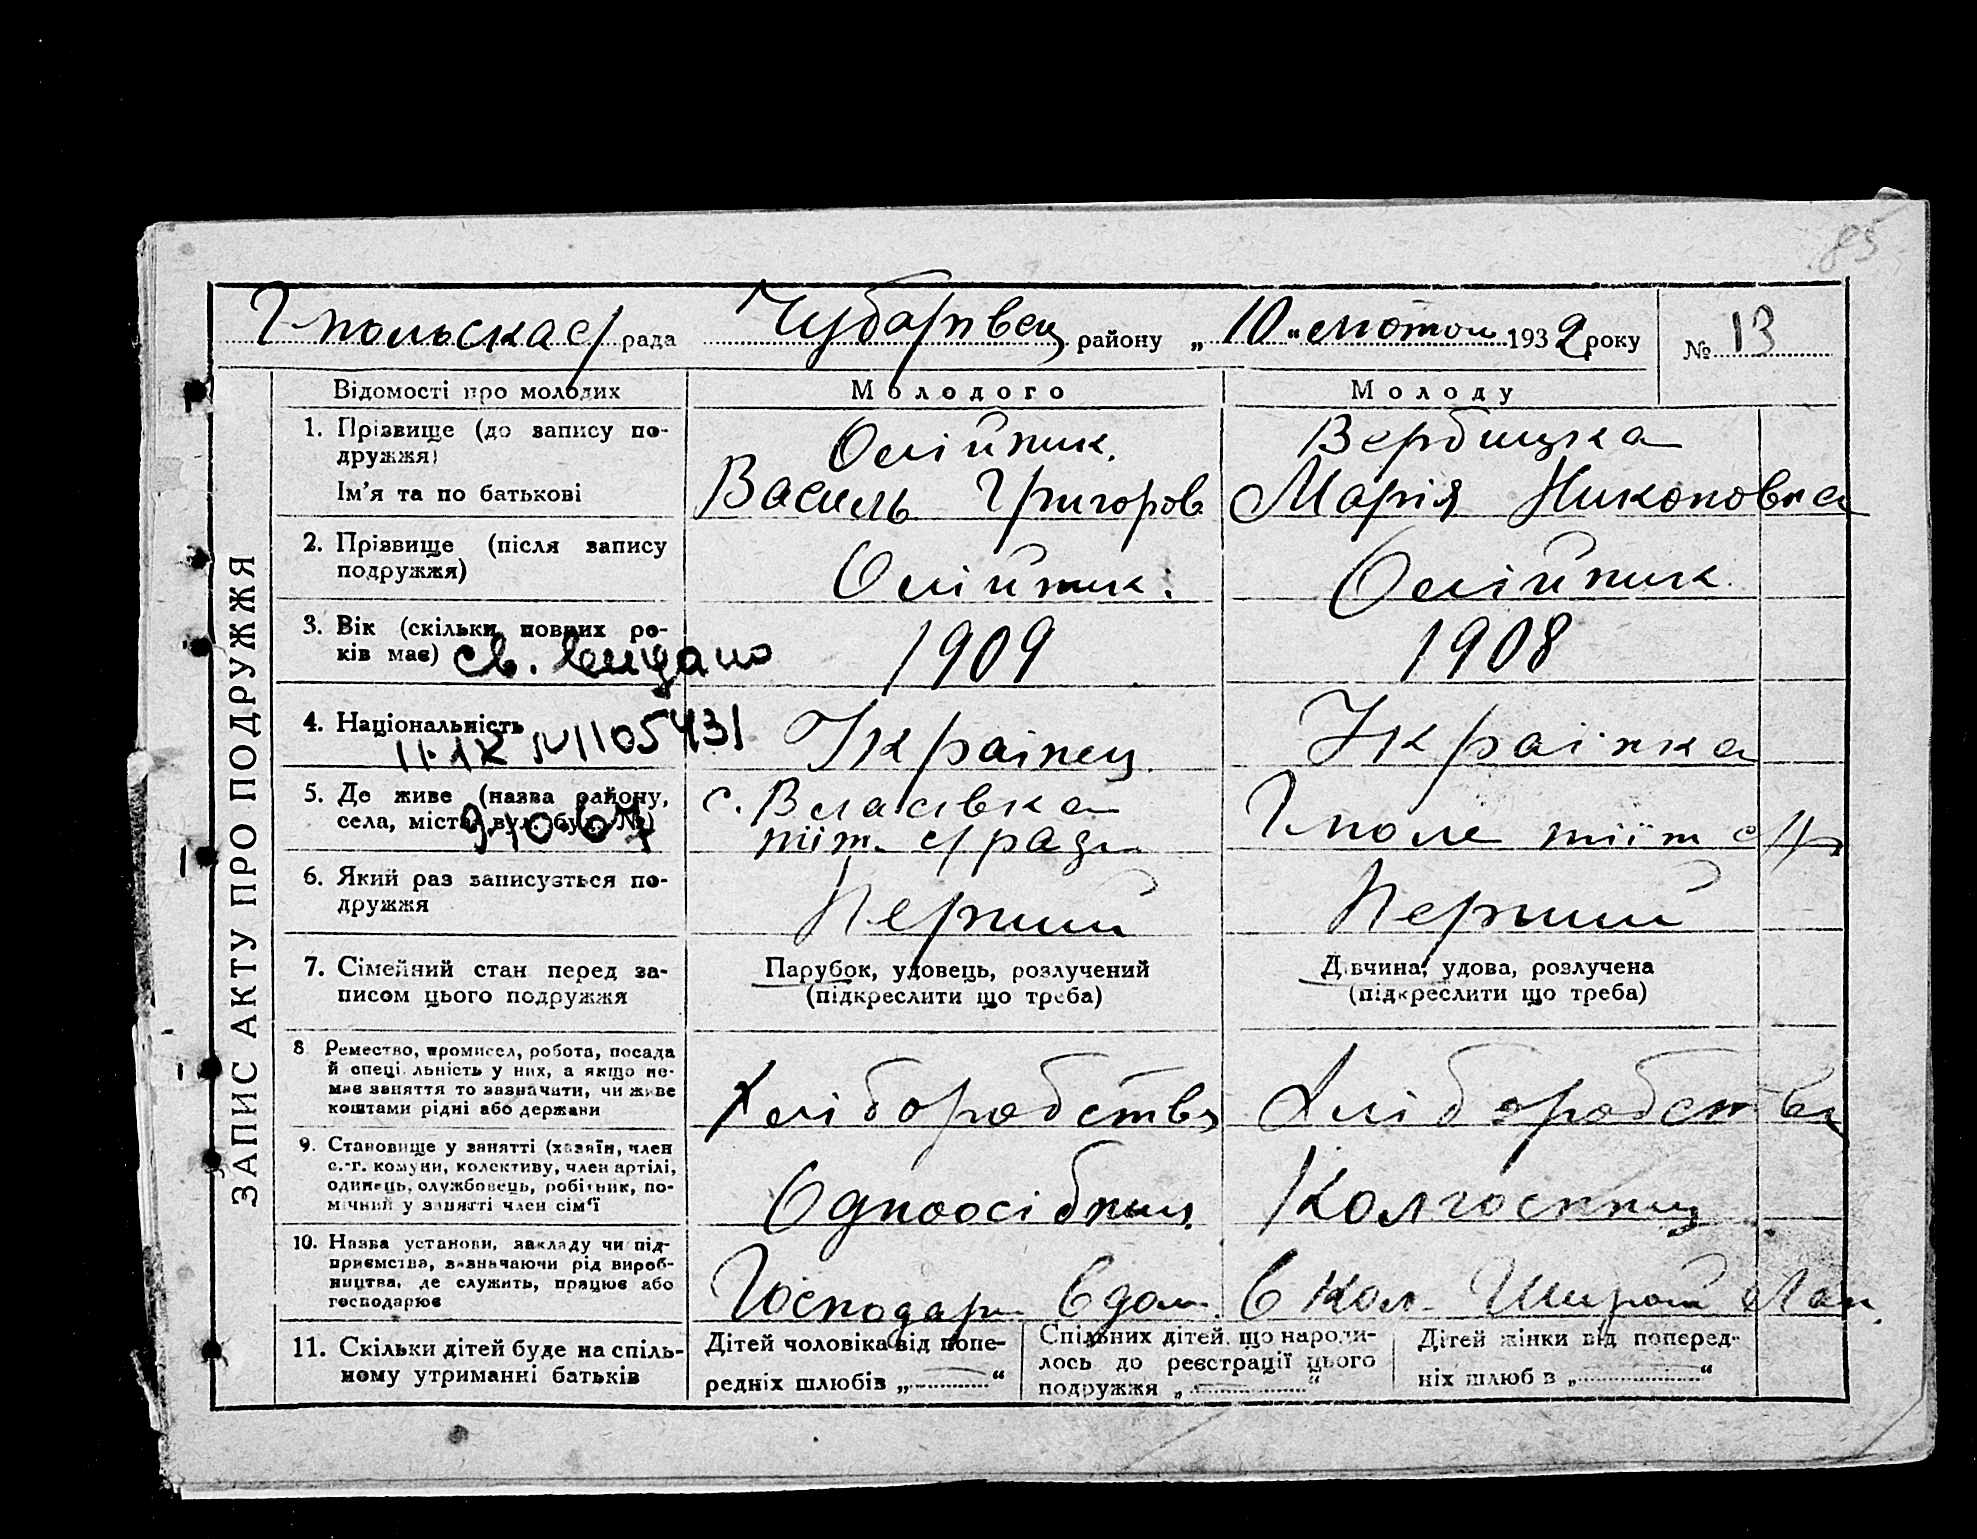 85
Гпольская с/рада Чубарівськ району „10“ лютого 1932 року № 13
ЗАПИС АКТУ ПРО ПОДРУЖЖЯ
Відомості про молодих Молодого Молоду
1. Прізвище (до запису по-
дружжя) Олійник. Вербицька
Ім'я та по батькові Василь Григоров Марія Никоновна
2. Прізвище (після запису
подружжя) Олійник Олійник
3. Вік (скільки повних ро-
ків має) 1909 1908
св. видано
4. Національність Українец Українка
11-ЖК №1105431
5. Де живе (назва району, с. Власівка
села, міста, вул. буд. №) тіт. с/ради Гполе тііт с/р
9/10.67
6. Який раз записується по-
дружжя Перший Перший
7. Сімейний стан перед за- Парубок, удовець, розлучений Дівчина, удова, розлучена
писом цього подружжя (підкреслити що треба) (підкреслити що треба)
8. Ремество, промисел, робота, посада
й спеціальність у них, а якщо не-
має заняття то зазначити, чи живе
коштами рідні або держави Хліборобство Хліборобство
9. Становище у занятті (хазяїн, член
с.-г. комуни, колективу, член артілі,
одинець, службовець, робітник, по-
мічний у занятті член сім'ї Одноосібниц Колгоспниц
10. Назва установи, закладу чи під-
приємства, зазначаючи рід вироб-
ництва, де служить, працює або
господарює Господар вдом. в кол. Широкий Лан
11. Скільки дітей буде на спіль-
ному утриманні батьків
Дітей чоловіка від попе-
редніх шлюбів „ — “
Спільних дітей, що народи-
лось до реєстрації цього
подружжя „ — “
Дітей жінки від поперед-
ніх шлюбів „ “